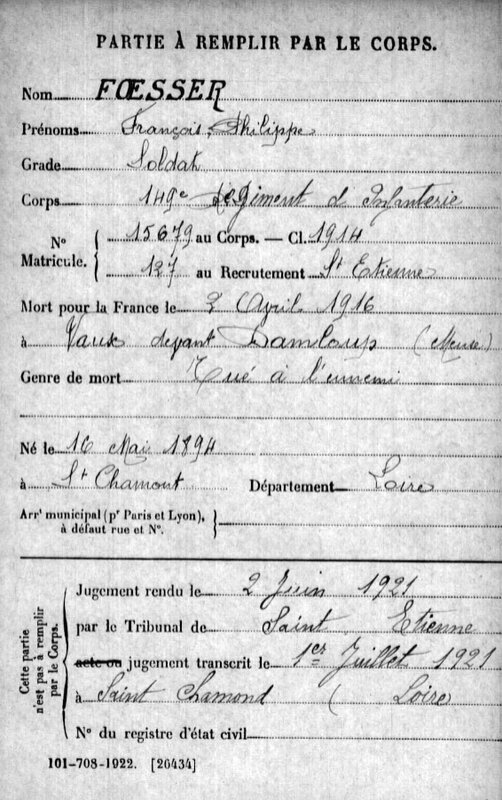 PARTIE À REMPLIR PAR LE CORPS.
Nom FŒSSER
Prénoms François, Philippe
Grade Soldat
Corps 149e Régiment d'Infanterie
N° Matricule. { 15679 au Corps. — Cl. 1914
127 au Recrutement St Etienne
Mort pour la France le 2 Avril 1916
à Vaux devant Damloup (Meuse)
Genre de mort Tué à l'ennemi
Né le 16 Mai 1894
à St Chamont Département Loire
Arrt municipal (pr Paris et Lyon),
à défaut rue et N°.
Cette partie n'est pas à remplir par le Corps.
Jugement rendu le 2 Juin 1921
par le Tribunal de Saint Etienne
acte ou jugement transcrit le 1er Juillet 1921
à Saint Chamond (Loire)
N° du registre d'état civil
101-708-1922. [26434]